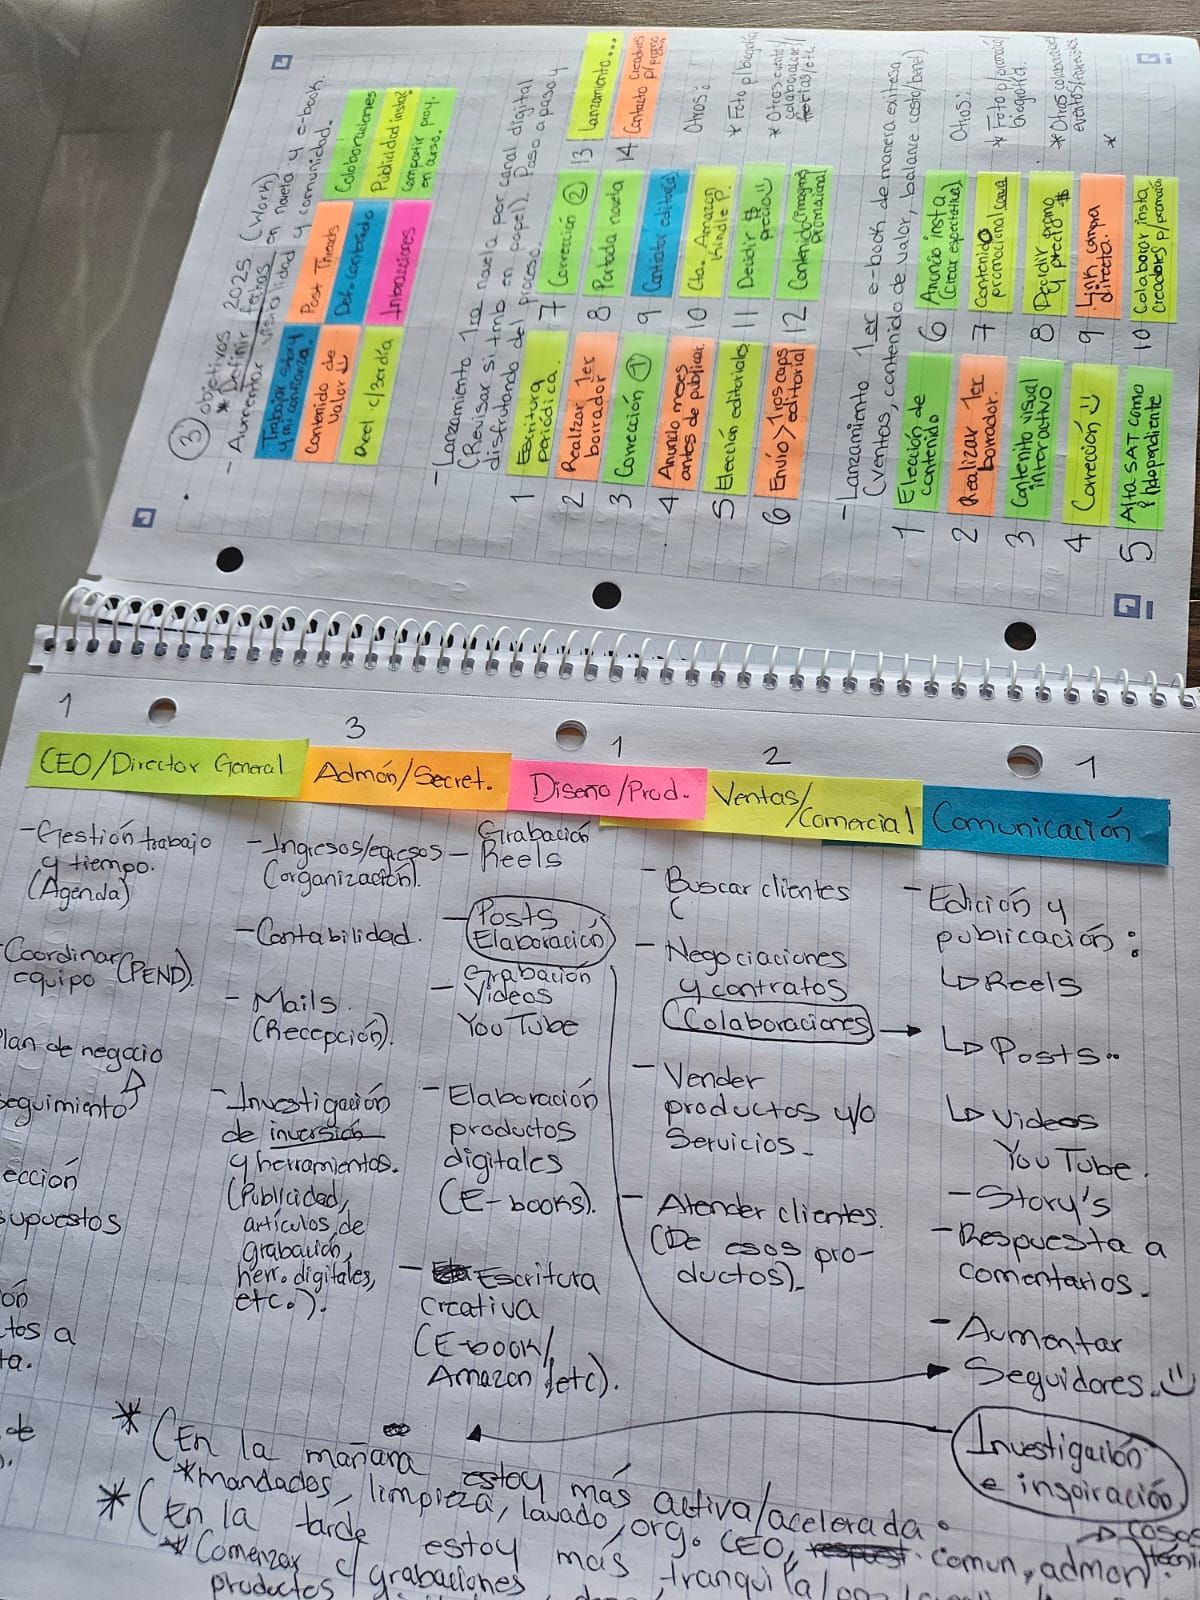 ③ objetivos 2025 (Work)
* Definir fechas
- Aumentar visibilidad en novela y e-book.
y comunidad.
Trabajar story
y mi confianza.
Contenido de
valor
Reel c/3er día
Post Threads
Def. contenido
Interacciones
Colaboraciones
Publicidad insta?
Compartir proy.
en curso.
- Lanzamiento 1ra novela por canal digital
(Revisar si tmb en papel). Paso a paso y
disfrutando del proceso.
1 Escritura
periódica.
2 Realizar 1er
borrador
3 Corrección ①
4 Anuncio meses
antes de publicar.
5 Elección editoriales
6 Envío > 1ros caps
editorial
7 Corrección ②
8 Portada novela
9 Contratar editor(a)
10 Cta. Amazon
Kindle P.
11 Decidir $
precio
12 Contenido (imagen)
promocional
13 Lanzamiento...
14 Contacto creadores
p/promo
Otros:
* Foto p/biografía
* Otros cuentos/
colaboraciones/
- Lanzamiento 1er e-book de manera exitosa
(Ventas, contenido de valor, balance costo/benef)
1 Elección de
contenido
2 Realizar 1er
borrador.
3 Contenido visual
interactivo
4 Corrección
5 Alta SAT como
independiente
6 Anuncio insta
(crear expectativa)
7 Contenido
promocional
8 Decidir promo
y precio $
9 Link compra
directa.
10 Colaborar insta
creadores p/promoción
Otros:
* Foto p/promoción/
biografía.
* Otros colaboraciones
*
1
CEO/Director General
- Gestión trabajo
y tiempo.
(Agenda)
Coordinar
equipo (PEND).
Plan de negocio
seguimiento
ección
supuestos
ón
tos a
ta.
de
3
Admón/Secret.
- Ingresos/egresos
(organización).
- Contabilidad.
- Mails.
(Recepción).
- Investigación
de inversión
y herramientas.
(Publicidad,
artículos de
grabación,
herr. digitales,
etc.).
1
Diseño/Prod.
Grabación
- Reels
- Posts
Elaboración
Grabación
- Videos
YouTube
- Elaboración
productos
digitales
(E-books).
- Escritura
creativa
(E-book/
Amazon/etc).
2
Ventas/
Comercial
- Buscar clientes
(
- Negociaciones
y contratos
(Colaboraciones)
- Vender
productos y/o
Servicios.
- Atender clientes.
(De esos pro-
ductos).
1
Comunicación
- Edición y
publicación:
↳ Reels
↳ Posts..
↳ Videos
YouTube.
- Story's
- Respuesta a
comentarios.
- Aumentar
Seguidores..
Investigación
e inspiración
* (En la mañana estoy más activa/acelerada.
* mandados, limpieza, lavado, org. CEO, comun, admon.
* (En la tarde estoy más tranquila
* Comenzar c/grabaciones
productos